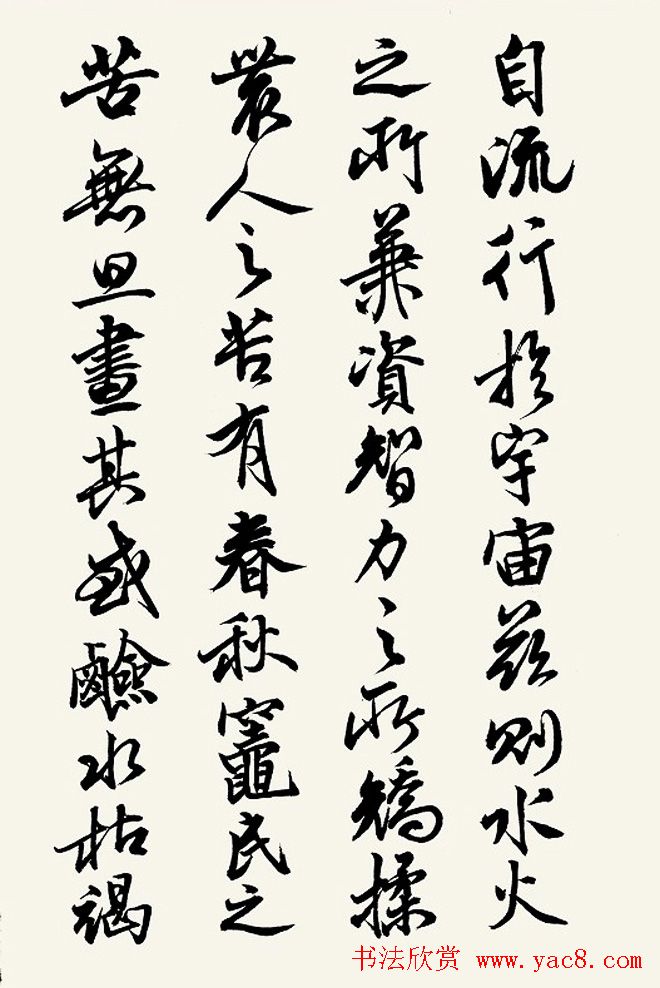 自流行於宇宙兹則水火
之所兼資智力之所矯揉
農人之苦有春秋竈民之
苦無旦晝其或鹼水枯竭
书法欣赏 www.yac8.com